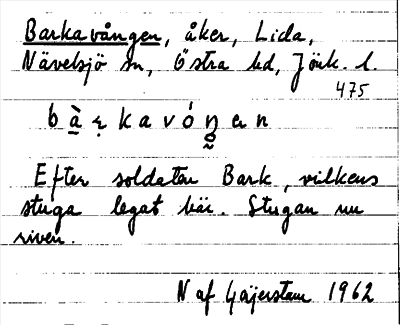 Barkavången, åker, Lida,
Nävelsjö sn, Östra hd, Jönk. l.
475
Efter soldaten Bark, vilkens
stuga legat här. Stugan nu
riven.
N af Geijerstam 1962